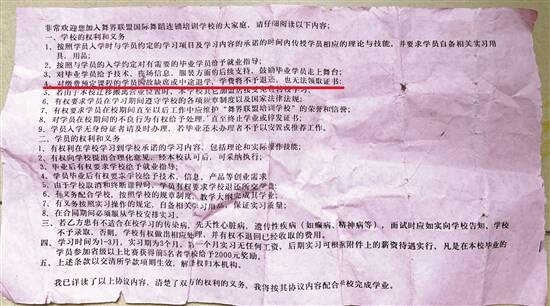 非常欢迎您加入舞界联盟国际舞蹈连锁培训学校的大家庭，请仔细阅读以下内容：
一、学校的权利和义务
1、按照学员入学时与学员约定的学习项目及学习内容的承诺的时间内传授学员相应的理论与技能，并要求学员自备相关实习用
具、用品；
2、按照入学时的约定对有需要的毕业学员给予就业指导；
3、对毕业学员给于技术、夜场信息、服装方面的后续支持，鼓励毕业学员走上舞台；
4、对缴费预定课程的学员因故缺席或中途退学，学费将不予退还，也无法领取证书；
5、若由于本校迁移搬离营业位置时，本学校其它加盟店接受免费转校学习；
6、有权要求学员在学习期间遵守学校的各项规章制度以及国家法律规；
7、有权要求学员在校期间直至以后工作中应维护"舞界联盟学校"的荣誉和信誉；
8、对学员在校期间的不良行为有权给予处理，直至终止学业或停发证书；
9、学员入学无身份证者请及时办理，若毕业还未办理者不予以安放或推荐工作。
二、学员的权利和义务
1、有权利在学校学习到学校承诺的学习内容，包括理论和实际操作技能；
2、有权向学校提出合理化意见，经本校认可后，可采纳执行；
3、毕业后有权要求学校给予就业指导；
4、学员毕业后有权要求学校给予技术、信息、产品等创业需求
5、由于学校取消和终断课程时，学员有权要求学校退还所交学费；
6、有义务配合学校，按照学校的规章制度，教学大纲完成其学业；
7、有义务按照实习操作的规定，自备相关学习用品，保证实习质量；
8、在合同期间必须服从学校安排实习。
三、若乙方患有不适合在校学习的传染病、先天性心脏病，遗传性疾病（如癫痫、精神病等），而面试时应如实向学校告知，学校
不予录取，否则，学校有权做出相应处理，并有权不退回已经收取的费用。
四、学习时间为1-3月，实习期为3个月。第一个月实习无任何工资，后期实习可根据附件上的薪资待遇实行，凡是在本校毕业的
学员参加省级以上比赛获得前5名者学校给于2000元奖励。
五、上述条款以交清所学款项则生效，解释权归本机构。
我已详读了以上协议内容，清楚了双方的权利的义务，我将按其协议内容配合学校完成学业。